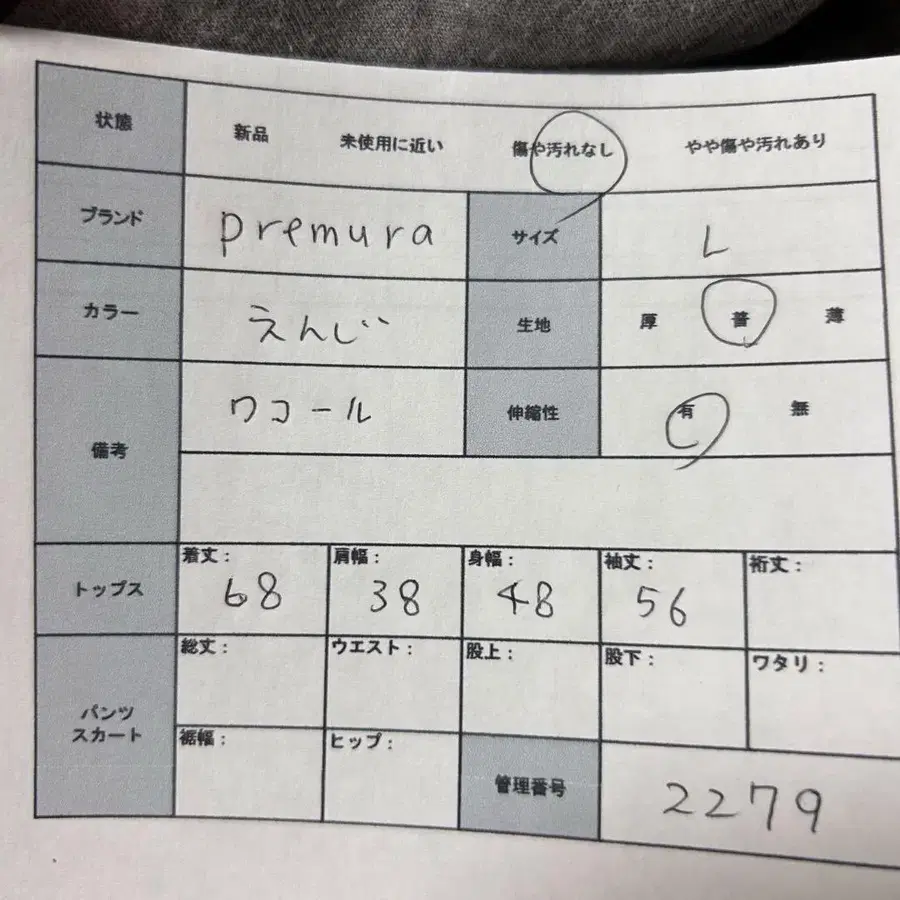 状態 新品 未使用に近い 傷や汚れなし やや傷や汚れあり
ブランド premura サイズ L
カラー えんじ 生地 厚 普 薄
備考 ワコール 伸縮性 有 無
トップス 着丈: 68 肩幅: 38 身幅: 48 袖丈: 56 裄丈:
パンツ スカート 総丈: ウエスト: 股上: 股下: ワタリ:
裾幅: ヒップ: 管理番号 2279